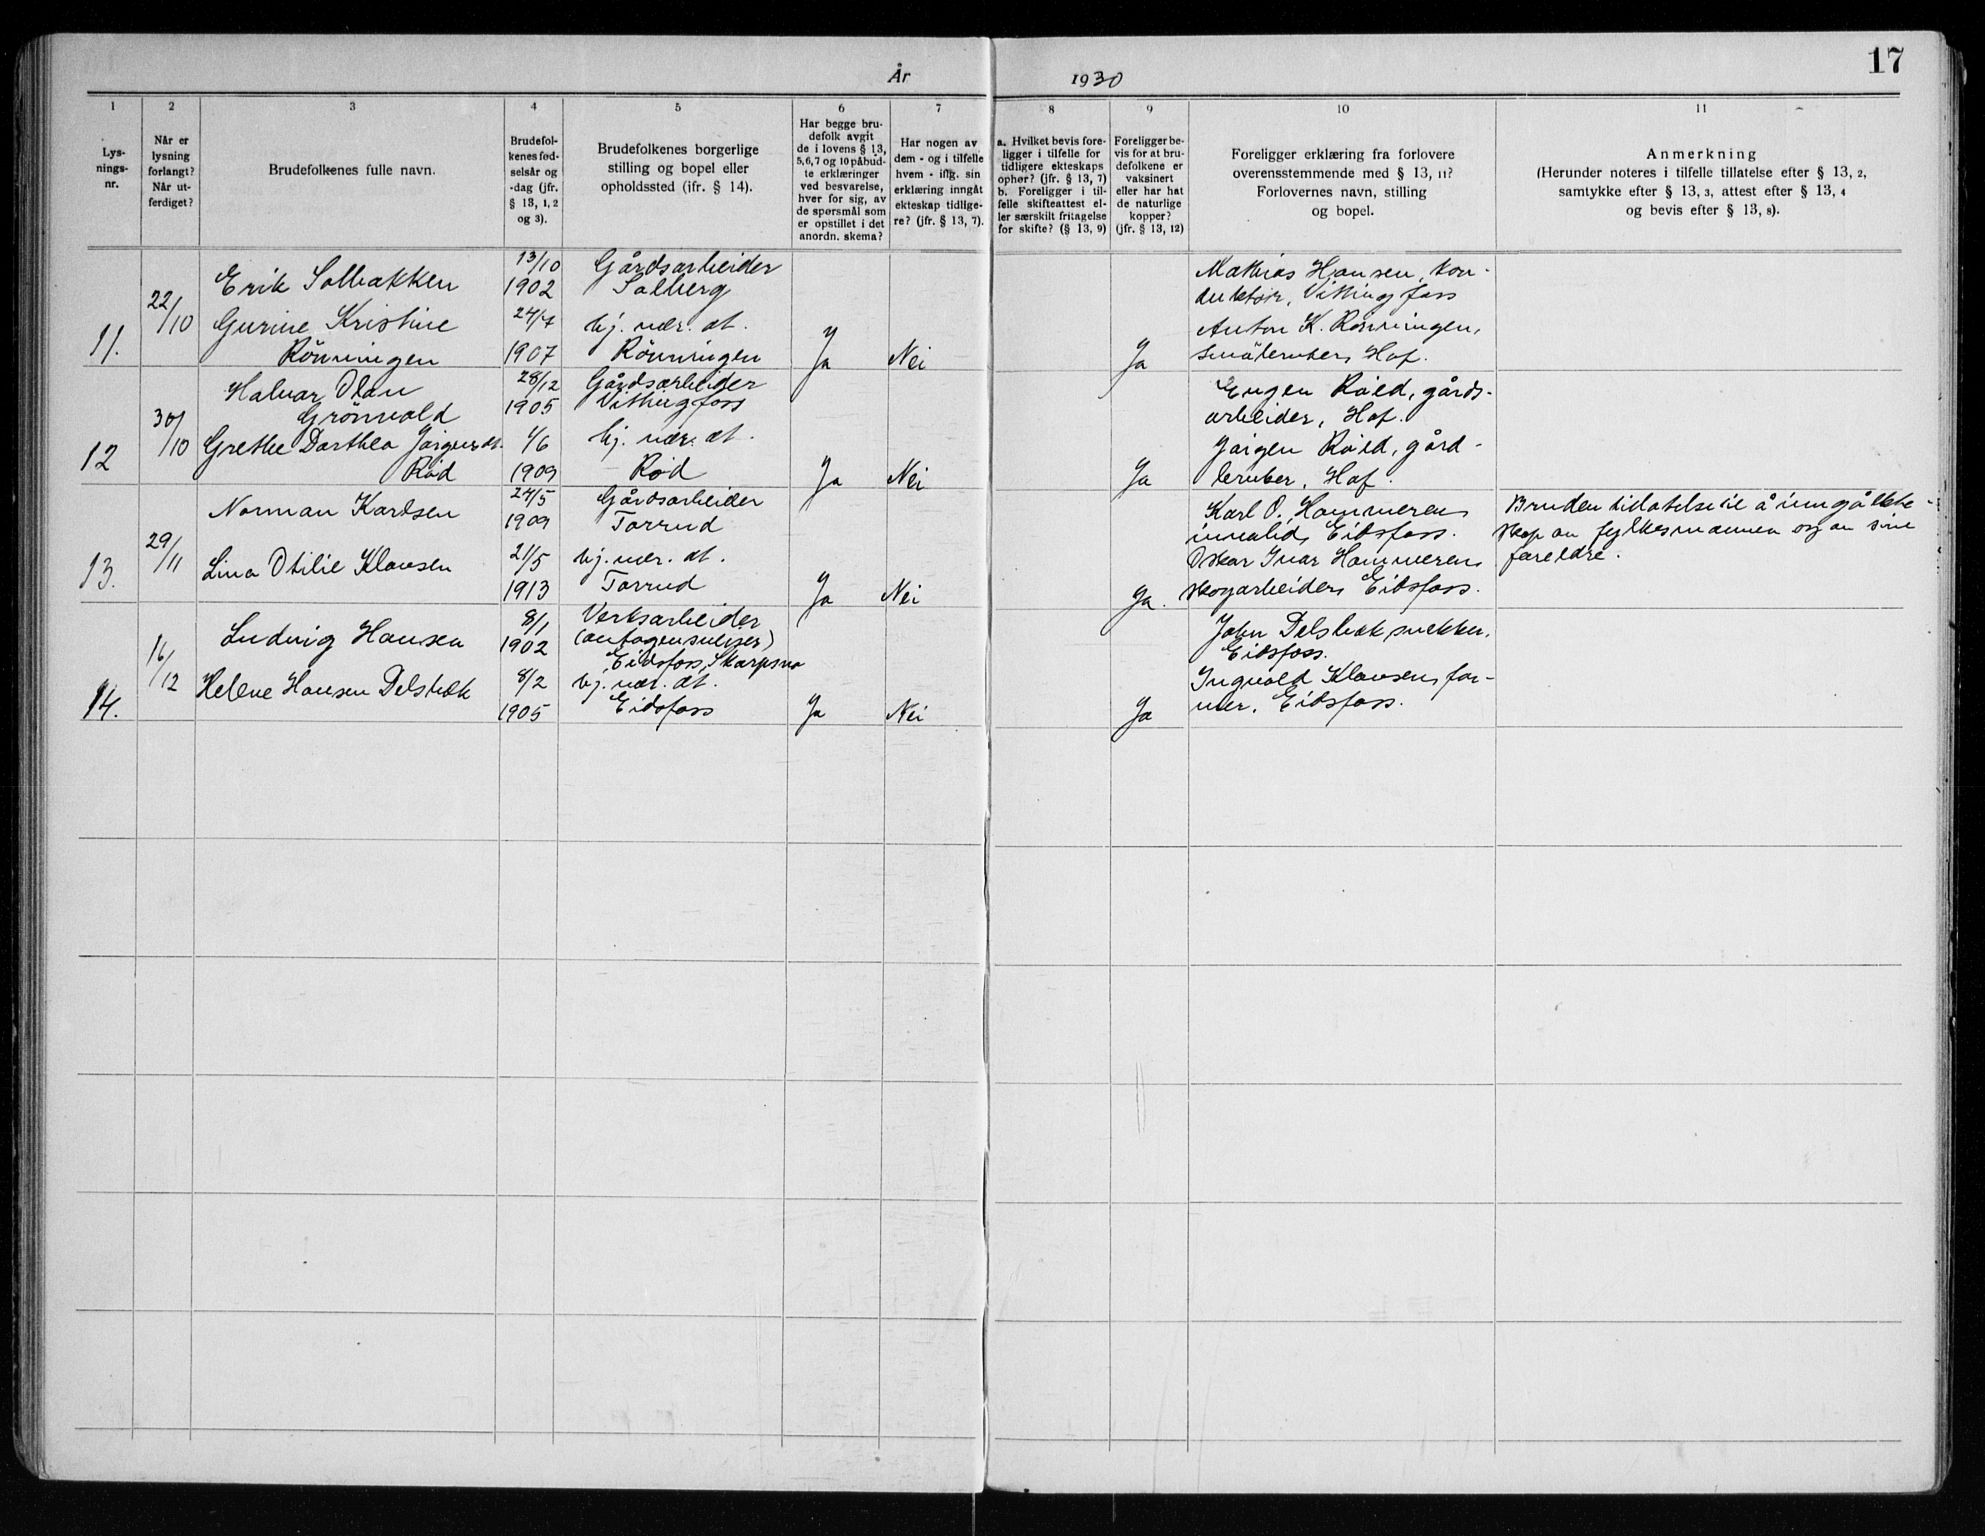 17
År 1930
1 2 3 4 5 6 7 8 9 10 11
Lys-
nings-
nr.
Når er
lysning
forlangt?
Når ut-
ferdiget?
Brudefolkenes fulle navn.
Brudefol-
kenes fød-
selsår og
-dag (jfr.
§ 13, 1, 2
og 3).
Brudefolkenes borgerlige
stilling og bopel eller
opholdssted (ifr. § 14).
Har begge bru-
defolk avgit
de i lovens § 13,
5,6,7 og 10 påbud-
te erklæringer
ved besvarelse,
hver for sig, av
de spørsmål som
er opstillet i det
anordn. skema?
Har nogen av
dem - og i tilfelle
hvem - iflg. sin
erklæring inngått
ekteskap tidlige-
re? (jfr. § 13, 7).
a. Hvilket bevis fore-
ligger i tilfelle for
tidligere ekteskaps
ophør? (jfr. § 13, 7)
b. Foreligger i til-
felle skifteattest el-
ler særskilt fritagelse
for skifte? (§ 13, 9)
Foreligger be-
vis for at bru-
defolkene er
vaksinert
eller har hat
de naturlige
kopper?
(jfr. § 13, 12)
Foreligger erklæring fra forlovere
overensstemmende med § 13, 11?
Forlovernes navn, stilling
og bopel.
Anmerkning
(Herunder noteres i tilfelle tillatelse efter § 13, 2,
samtykke efter § 13, 3, attest efter § 13, 4
og bevis efter § 13, 8).
11.
22/10
Erik Solbakken
Gurine Kristine
Rönningen
13/10
1902
24/7
1907
Gårdsarbeider
Solberg
hj. vær. dt.
Rönningen
Ja
Nei
Ja
Mathias Hansen, kon-
duktør, Vittingfoss
Anton K. Rönningen,
småbruker, Hof.
12
30/10
Halvar Olav
Grönvold
Grethe Dorthea Jörgensdt.
Röd
28/12
1905
1/6
1909
Gårdsarbeider
Vittingfoss
hj. vær. dt.
Röd
Ja
Nei
Ja
Eugen Röed, gårds-
arbeider, Hof.
Jörgen Röed, gård-
bruker, Hof.
13.
29/11
Norman Karlsen
Lina Otilie Klausen
24/5
1909
21/5
1913
Gårdsarbeider
Torrud
hj. vær. dt.
Torrud
Ja
Nei
Ja.
Karl O. Hammeren,
invalid, Eidsfoss.
Oskar Ivar Hammeren,
skogarbeider, Eidsfoss.
Bruden tillatelse til å inngå ekte-
skap av fylkesmannen og av sine
foreldre.
14.
16/12
Ludvig Hansen
Helene Hansen Delsbæk
8/1
1902
8/2
1905
Verksarbeider
Eidsfoss, Skarpsno
hj. vær. dt.
Eidsfoss
Ja
Nei
Ja
John Delsbæk, snekker,
Eidsfoss.
Ingvald Klausen, for-
mer, Eidsfoss.